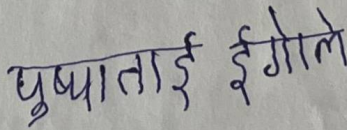 पुष्पाताई ईंगोले